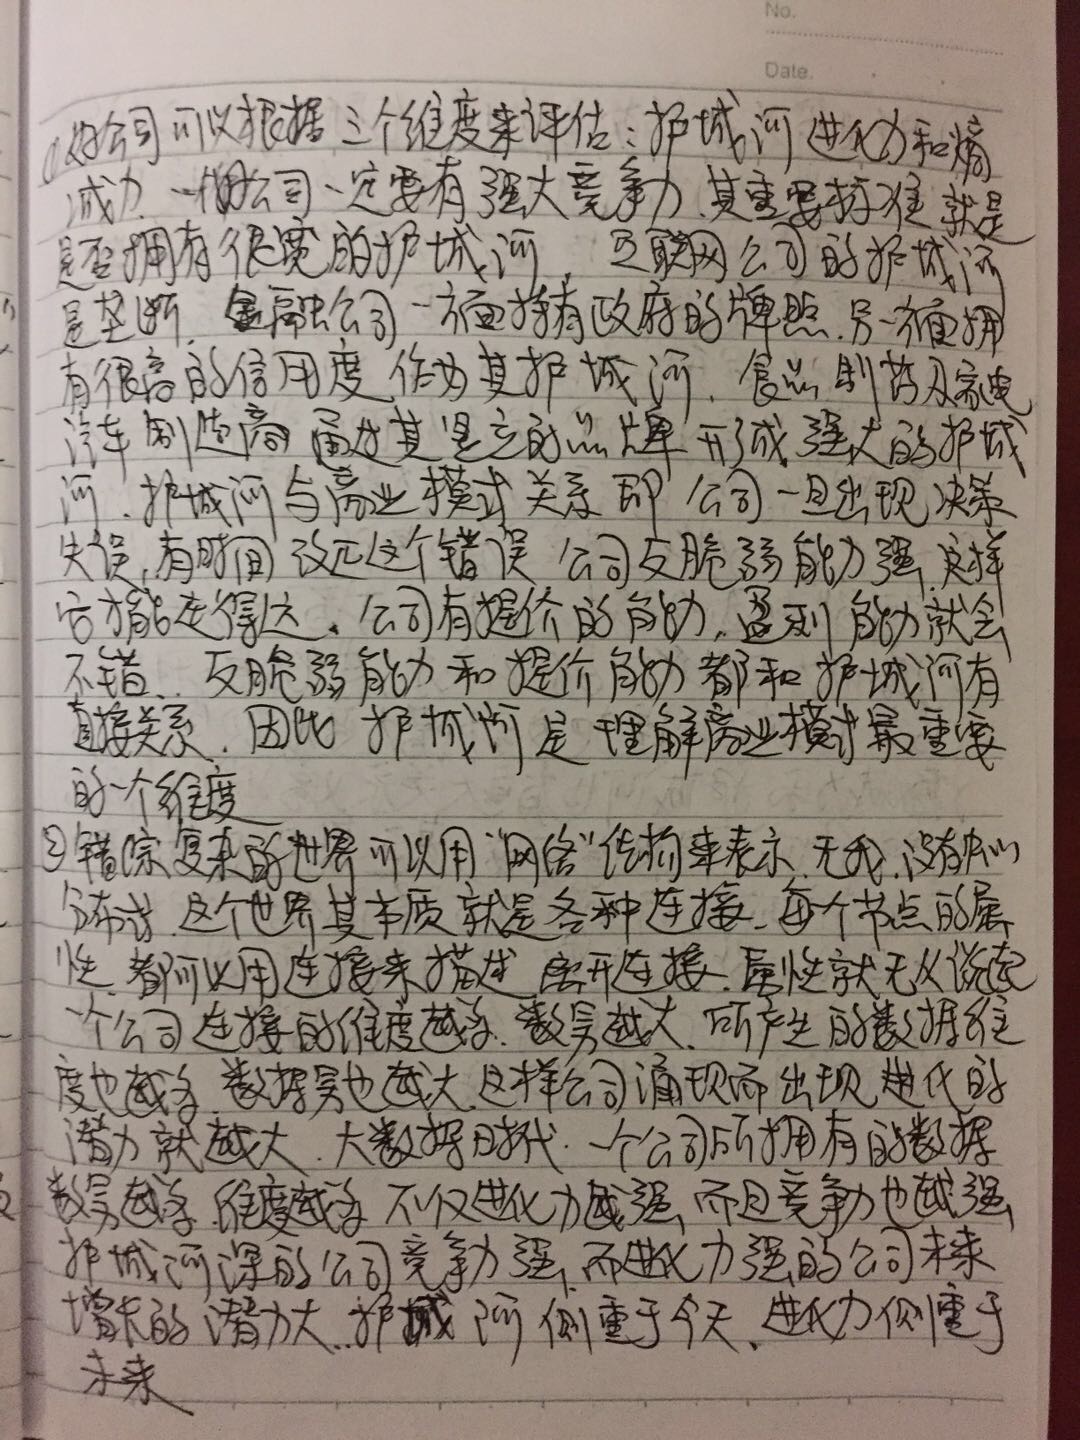 No.
Date.
①好公司可以根据三个维度来评估：护城河 进化力和熵
减力.一个好公司一定要有强大竞争力.其重要标准就是
是否拥有很宽的护城河. 互联网公司的护城河
是垄断.金融公司一方面持有政府的牌照.另一方面拥
有很高的信用度 作为其护城河.食品 制药及家电
汽车制造商 通过其坚立的品牌 形成强大的护城
河.护城河与商业模式关系即 公司一旦出现决策
失误,有时间改正这个错误 公司反脆弱能力强 这样
它才能走得远.公司有提价的能力.盈利能力就会
不错. 反脆弱能力和提价能力都和护城河有
直接关系.因此 护城河是理解商业模式最重要
的一个维度
②错综复杂的世界可以用"网络"结构来表示.无我.没有中心
分布式.这个世界其本质就是各种连接.每个节点的属
性 都可以用连接来描述 离开连接.属性就无从谈起
一个公司连接的维度越多.数量越大.所产生的数据维
度也越多.数据量也越大.这样公司涌现而出现 进化的
潜力就越大.大数据时代.一个公司所拥有的数据
数量越多.维度越多 不仅进化力越强 而且竞争力也越强
护城河深的公司竞争力强,而进化力强的公司未来
增长的潜力大.护城河侧重于今天.进化力侧重于
未来